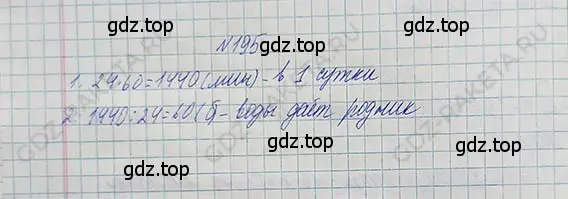 gdz.top gdz.top
№195
1. 24·60=1440(мин)-в 1 сутки
2. 1440:24=60(б)-воды даёт родник
gdz.top gdz.top
gdz.top gdz.top
GDZ-RAKETA.RU